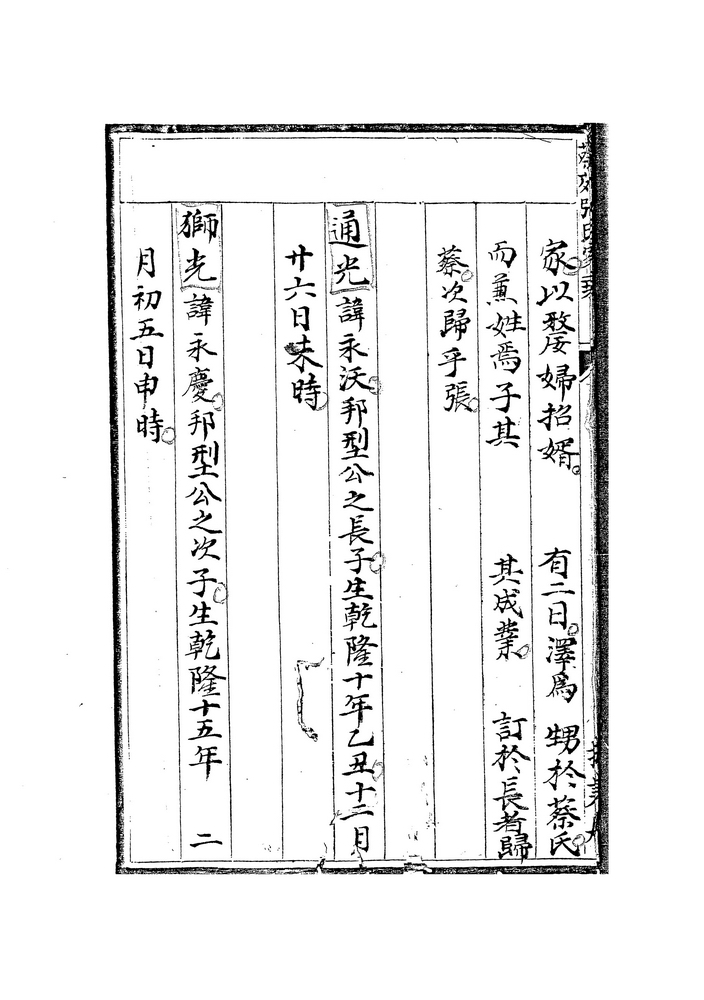 家以嫠婦招婿 有二日澤爲甥於蔡氏
而兼姓焉子其 其成業 訂於長者歸
蔡次歸乎張
通光諱永沃邦型公之長子生乾隆十年乙丑十二月
廿六日未時
獅光諱永慶邦型公之次子生乾隆十五年 二
月初五日申時